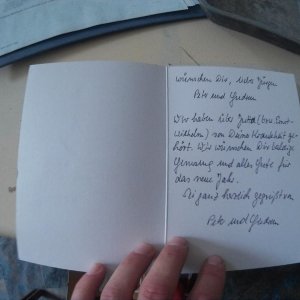 wünschen Dir, lieber Jürgen
Peter und Gudrun
Wir haben über Jutta (bzw. Ernst-
Wilhelm) von Deiner Krankheit ge-
hört. Wir wünschen Dir baldige
Genesung und alles Gute für
das neue Jahr.
Sei ganz herzlich gegrüßt von
Peter und Gudrun